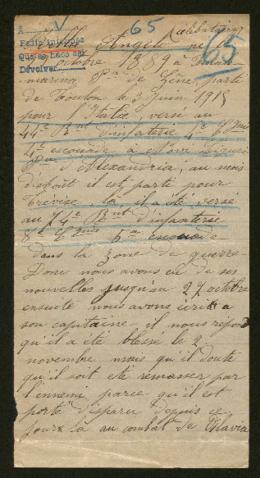 65
Angelo né
15
octobre 1889 à
marina Pce de Gêne parte
de Toulon le 3 juin 1915
pour l'Italie, versé au
44e R'ment d'infaterie 4e Cie
4e escouade à
d'Alexandria, au mois
d'août il est parte pour
Trévise la il a été versé
au 74e R'ment d'infaterie
8e Cie 5e escouade
dans la zone de guerre
Donc nous avons eu de ses
nouvelles jusqu'au 27 octobre
ensuite nous avons écrit a
son capitaine, il nous répond
qu'il a été blessé le 2
novembre mais qu'il doute
qu'il soit été ramasser par
l'ennemi parce qu'il est
porté disparu depuis ce
jour la au combat de